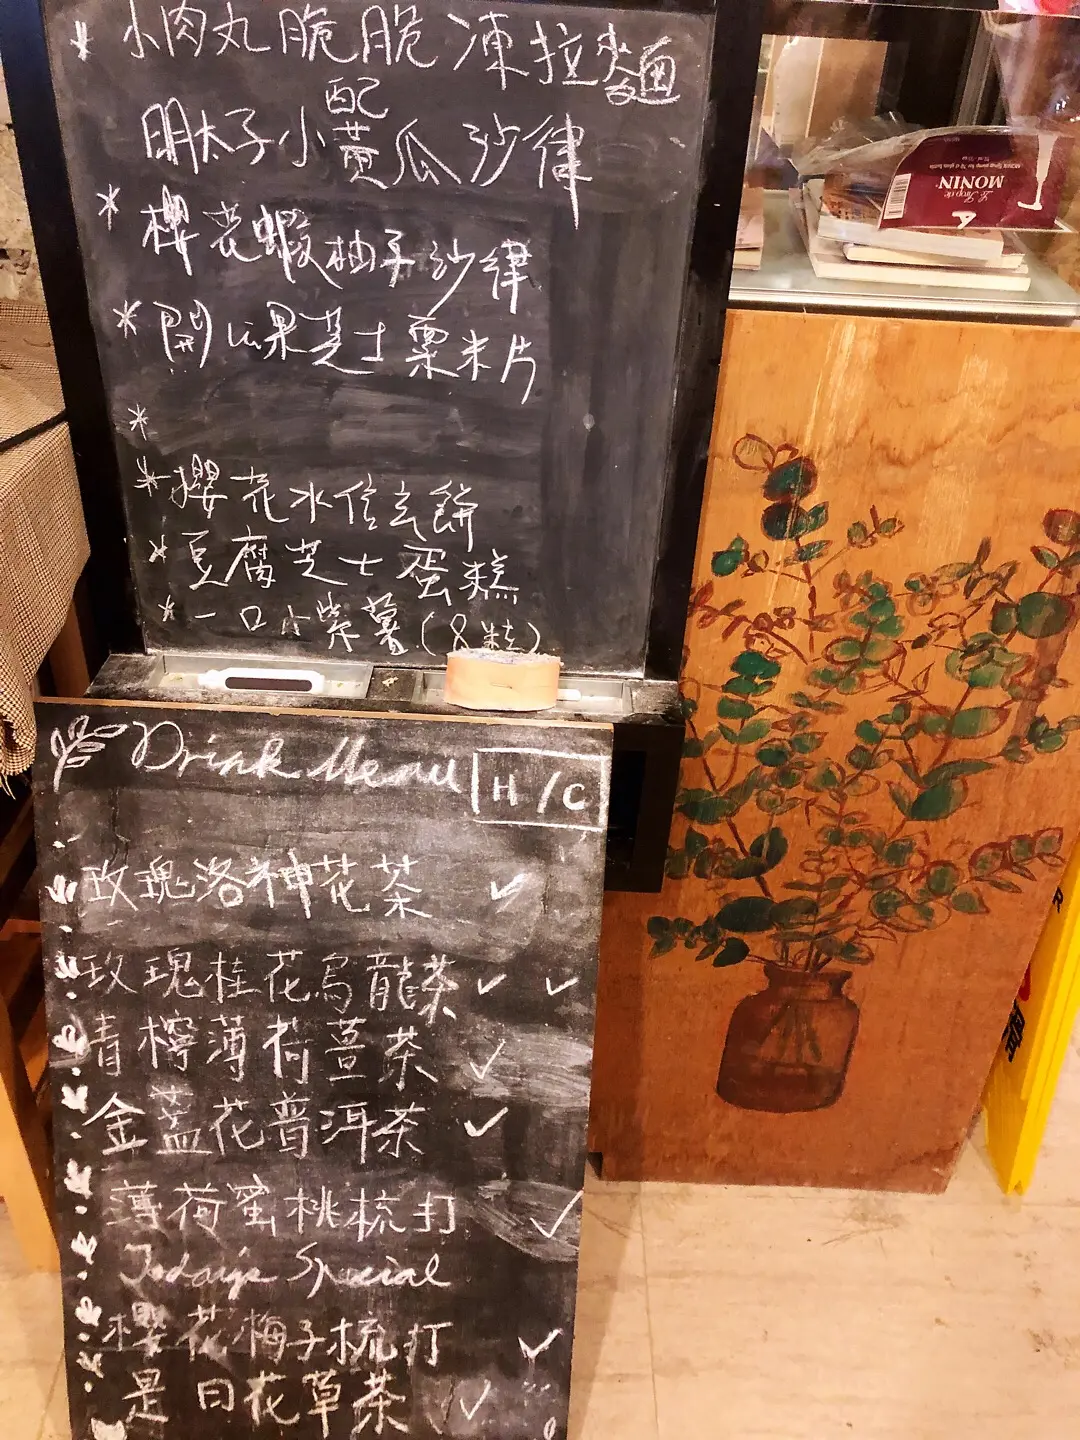 * 小肉丸脆脆凍拉麵
配
明太子小黃瓜沙律
* 櫻花蝦柚子沙律
* 開心果芝士粟米片
*
* 櫻花水信玄餅
* 豆腐芝士蛋糕
* 一口小紫薯(8粒)
Drink Menu H/C
玫瑰洛神花茶 ✓
玫瑰桂花烏龍茶 ✓ ✓
青檸薄荷薑茶 ✓
金盞花普洱茶 ✓
薄荷蜜桃梳打 ✓
Today's Special
櫻花梅子梳打 ✓
是日花草茶 ✓
Le Sirop de
MONIN